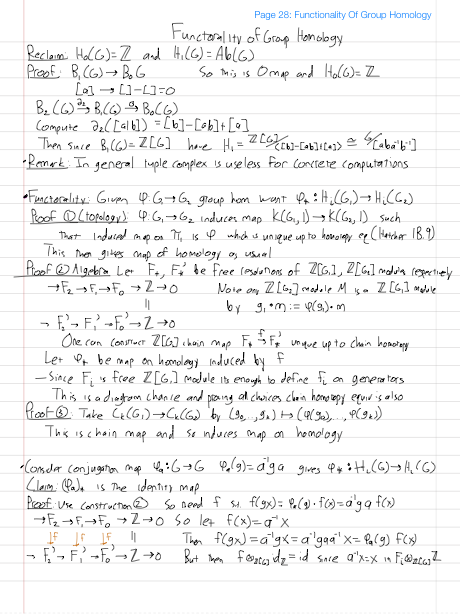 Page 28: Functionality Of Group Homology
Functorality of Group Homology
Reclaim: H₀(G)=ℤ and H₁(G)=Ab(G)
Proof: B₁(G)→B₀G So this is 0 map and H₀(G)=ℤ
[a]→[]-[]=0
B₂(G)→^∂₂ B₁(G)→^∂₁ B₀(G)
Compute ∂₂([a|b])=[b]-[ab]+[a]
Then since B₁(G)=ℤ[G] have H₁=ℤ[G]/⟨[b]-[ab]+[a]⟩ ≅ G/[aba⁻¹b⁻¹]
• Remark: In general tuple complex is useless for concrete computations
• Functorality: Given φ:G₁→G₂ group hom want φ_*:H_i(G₁)→H_i(G₂)
Proof ① (topology): φ:G₁→G₂ induces map K(G₁,1)→K(G₂,1) such
that induced map on π₁ is φ which is unique up to homotopy eq (Hatcher 1B.9)
This then gives map of homology as usual
Proof ② Algebra Let F_*, F_*' be free resolutions of ℤ[G₁], ℤ[G₂] modules respectively
→F₂→F₁→F₀→ℤ→0 Note any ℤ[G₂] module M is a ℤ[G₁] module
|| by g₁·m := φ(g₁)·m
→F₂'→F₁'→F₀'→ℤ→0
One can construct ℤ[G₁] chain map F_* →^f F_*' unique up to chain homotopy
Let φ_* be map on homology induced by f
- Since F_i is free ℤ[G₁] module its enough to define f_i on generators
This is a diagram chance and proving all choices chain homotopy equiv is also
Proof ③: Take C_k(G₁)→C_k(G₂) by (g₀,...,g_k)↦(φ(g₀),...,φ(g_k))
This is chain map and so induces map on homology
• Consider conjugation map φₐ:G→G φₐ(g)=a⁻¹ga gives φ_*:H_i(G)→H_i(G)
Claim: (φₐ)_* is the identity map
Proof: Use construction ② So need f s.t. f(gx)=φₐ(g)·f(x)=a⁻¹ga f(x)
→F₂→F₁→F₀→ℤ→0 So let f(x)=a⁻¹x
↓f ↓f ↓f || Then f(gx)=a⁻¹gx=a⁻¹gaa⁻¹x=φₐ(g) f(x)
→F₂'→F₁'→F₀'→ℤ→0 But then f⊗_ℤ[G] id_ℤ=id since a⁻¹x=x in F_i⊗_ℤ[G]ℤ